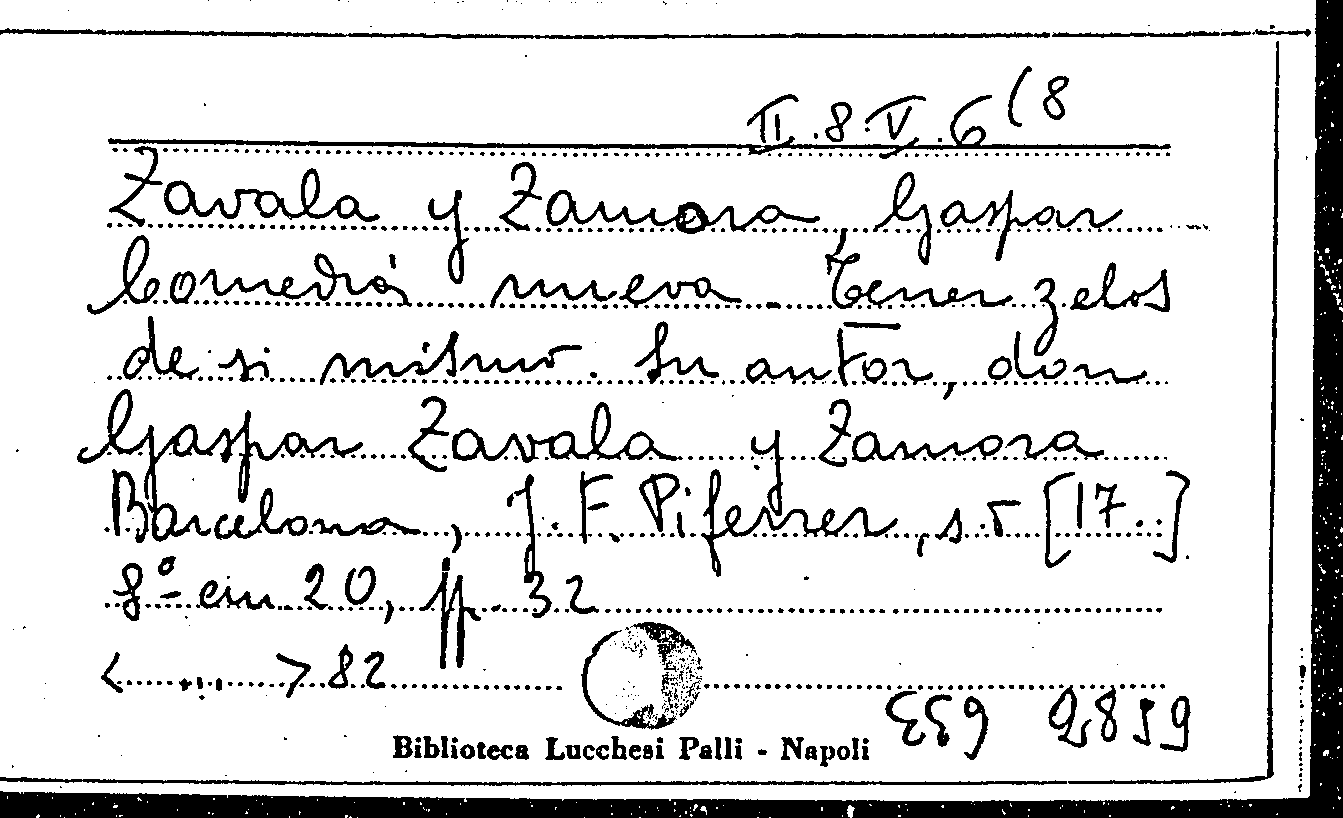 II.8.V.6(8
Zavala y Zamora, Gaspar
Comedia nueva. Tener zelos
de si mismo. Su autor, don
Gaspar Zavala y Zamora
Barcelona, J. F. Piferrer, s.t [17..]
8º cm. 20, pp. 32
<...>82
Biblioteca Lucchesi Palli - Napoli